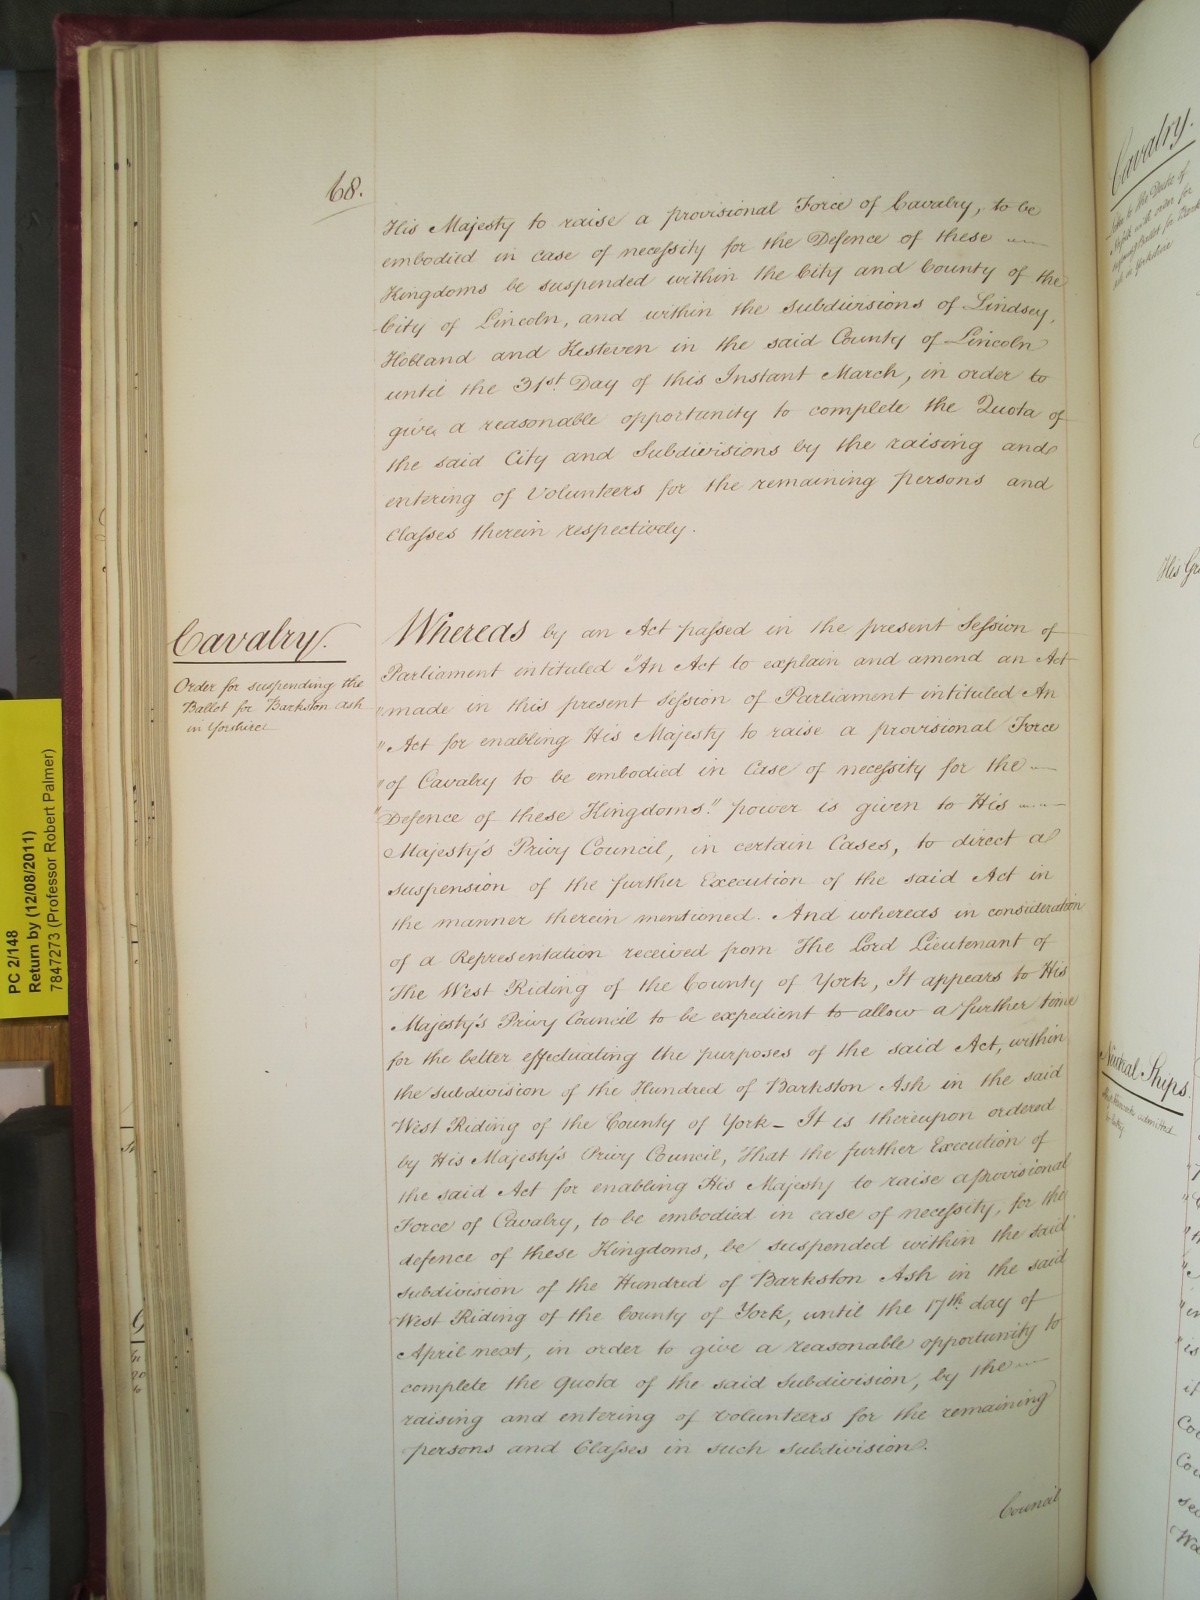 68.
His Majesty to raise a provisional Force of Cavalry, to be
embodied in case of necessity for the Defence of these
Kingdoms be suspended within the City and County of the
City of Lincoln, and within the subdivisions of Lindsey,
Holland and Kesteven in the said County of Lincoln
until the 31st Day of this Instant March, in order to
give a reasonable opportunity to complete the Quota of
the said City and Subdivisions by the raising and
entering of Volunteers for the remaining persons and
Classes therein respectively.
Cavalry.
Order for suspending the
Ballot for Barkston Ash
in Yorshire
Whereas by an Act passed in the present Session of
Parliament intituled "An Act to explain and amend an Act
"made in this present Session of Parliament intituled An
"Act for enabling His Majesty to raise a provisional Force
"of Cavalry to be embodied in Case of necessity for the
"Defence of these Kingdoms." power is given to His
Majesty's Privy Council, in certain Cases, to direct a
suspension of the further Execution of the said Act in
the manner therein mentioned. And whereas in consideration
of a Representation received from The Lord Lieutenant of
The West Riding of the County of York, It appears to His
Majesty's Privy Council to be expedient to allow a further time
for the better effectuating the purposes of the said Act, within
the subdivision of the Hundred of Barkston Ash in the said
West Riding of the County of York - It is thereupon ordered
by His Majesty's Privy Council, That the further Execution of
the said Act for enabling His Majesty to raise a provisional
Force of Cavalry, to be embodied in case of necessity, for the
defence of these Kingdoms, be suspended within the said
subdivision of the Hundred of Barkston Ash in the said
West Riding of the County of York, until the 17th day of
April next, in order to give a reasonable opportunity to
complete the Quota of the said Subdivision, by the
raising and entering of Volunteers for the remaining
persons and Classes in such Subdivision.
Council
PC 2/148
Return by (12/08/2011)
7847273 (Professor Robert Palmer)
Cavalry.
to the Duke of
with order for
in Yorkshire
His Gr
Neutral Ships.
admitted